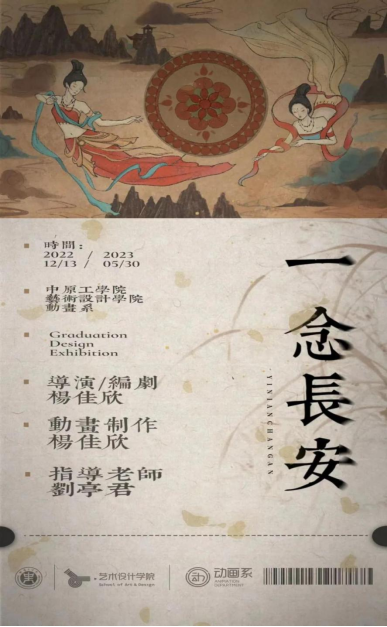 時間：
2022 / 2023
12/13 / 05/30
中原工學院
藝術設計學院
動畫系
Graduation
Design
Exhibition
導演/編劇
楊佳欣
動畫制作
楊佳欣
指導老師
劉亭君
一念長安
YINIANCHANGAN
艺术设计学院
School of Art & Design
动画系
ANIMATION
DEPARTMENT